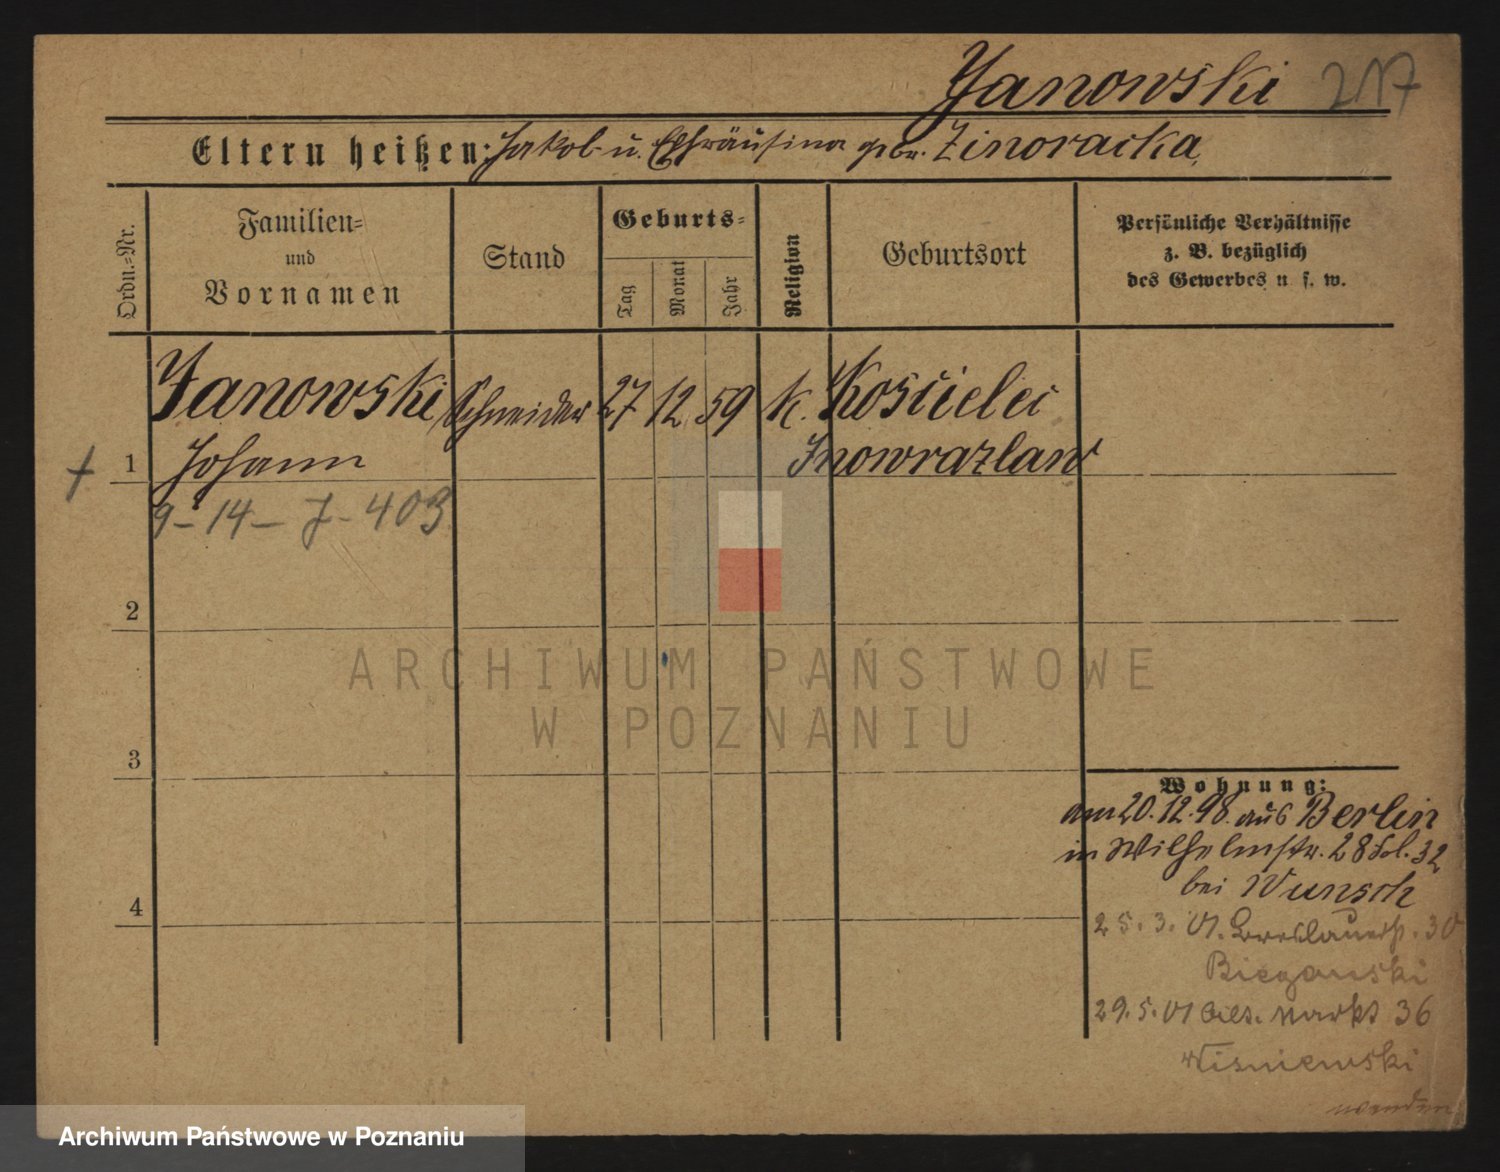 Janowski 217
Eltern heißen: Jakob u. Ephräusina geb. Zinoracka
Ordn.-Nr.
Familien-
und
Vornamen
Stand
Geburts-
Tag
Monat
Jahr
Religion
Geburtsort
Persönliche Verhältnisse
z. B. bezüglich
des Gewerbes u. s. w.
Janowski Schneider 27 12 59 k. Kościelei
† 1 Johann Inowrazlaw
9 - 14 - J - 403
2
3
4
Wohnung:
am 20.12.98. aus Berlin
in Wilhelmstr. 28 32
bei Wunsch
25.3.01. Breslauerstr. 30
Bieganski
29.5.01 Alt. Markt 36
Wisniewski
wenden
ARCHIWUM PAŃSTWOWE
W POZNANIU
Archiwum Państwowe w Poznaniu